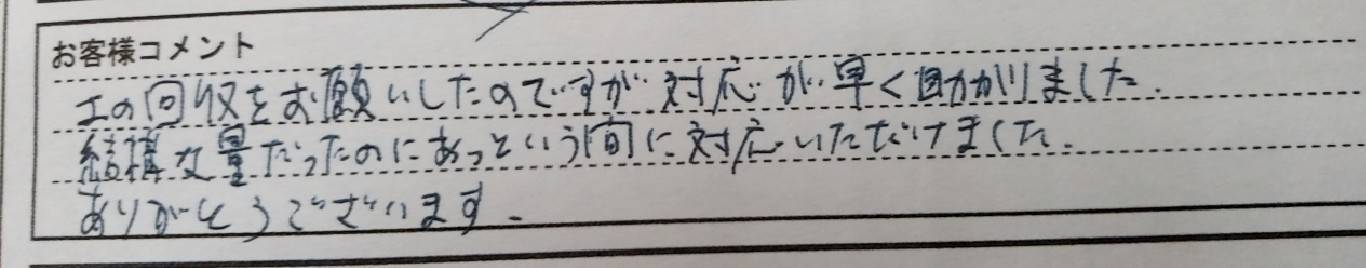 お客様コメント
土の回収をお願いしたのですが対応が早く助かりました.
結構な量だったのにあっという間に対応いただけました.
ありがとうございます.